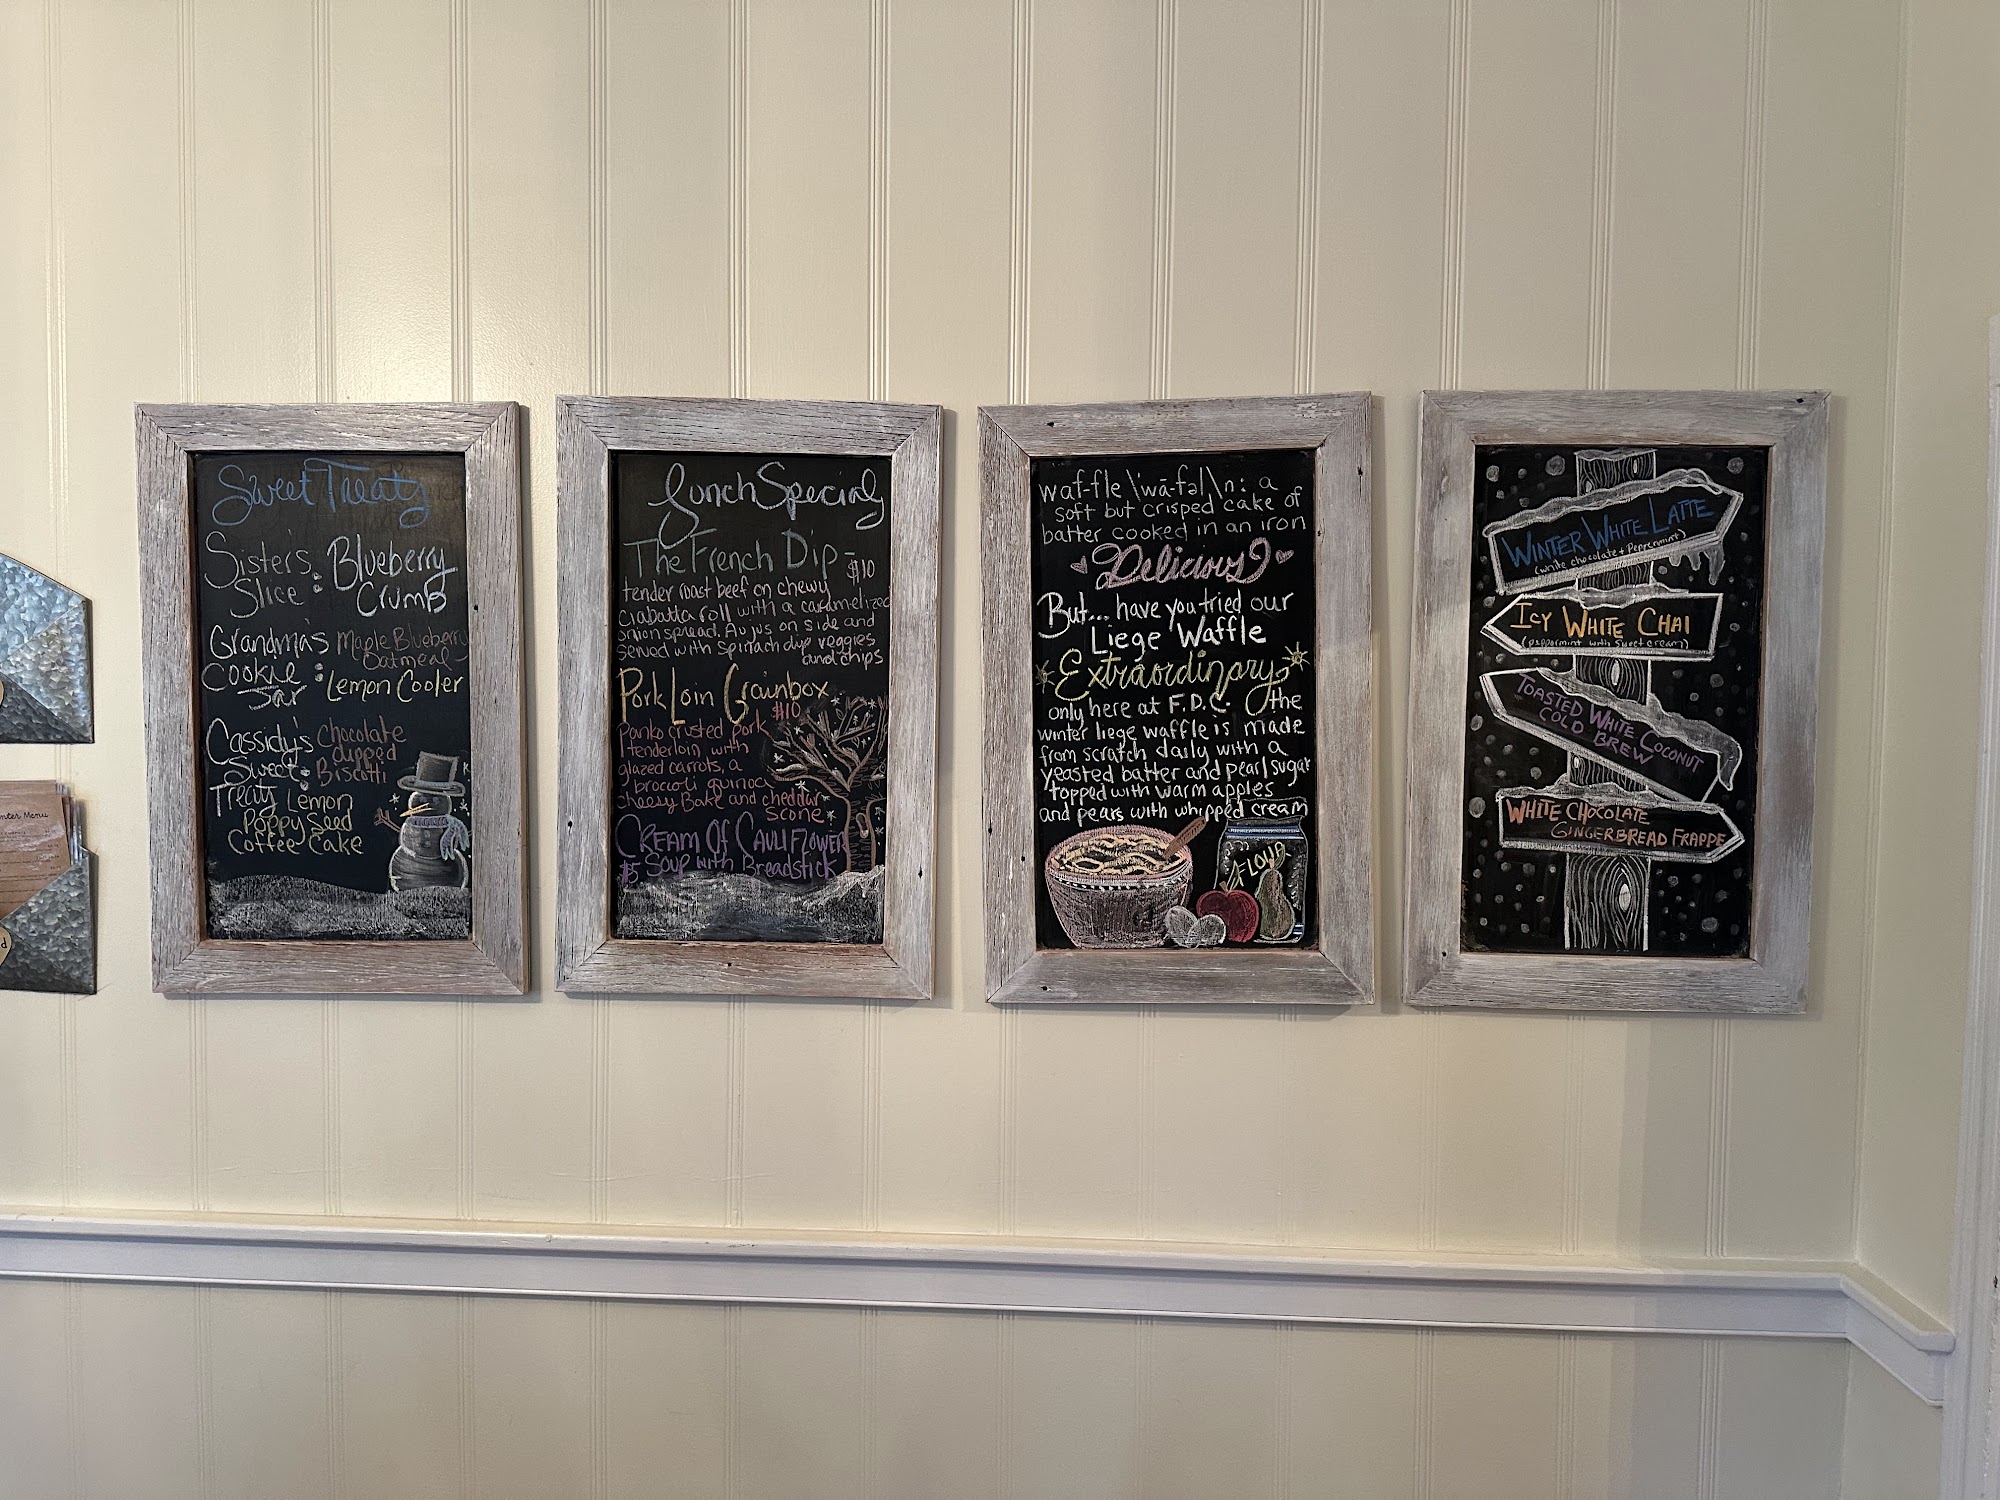 Sweet Treats
Sister's Slice : Blueberry Crumb
Grandma's Cookie Jar : Maple Blueberry Oatmeal
Lemon Cooler
Cassidy's Sweet Treats : Chocolate dipped Biscotti
Lemon Poppy Seed Coffee Cake
Lunch Specials
The French Dip - $10
tender roast beef on chewy
ciabatta roll with a caramelized
onion spread. Au jus on side and
served with spinach dip veggies
and chips
Pork Loin Grainbox
$10
Panko crusted pork
tenderloin with
glazed carrots, a
broccoli quinoa
cheesy Bake and cheddar
scone
Cream Of Cauliflower
$5 Soup with Breadstick
waf-fle \'wä-fəl\ n: a
soft but crisped cake of
batter cooked in an iron
Delicious?
But... have you tried our
Liege Waffle
Extraordinary
only here at F.D.C. the
winter liege waffle is made
from scratch daily with a
yeasted batter and pearl sugar
topped with warm apples
and pears with whipped cream
FLOUR
Winter White Latte
(white chocolate + Peppermint)
Icy White Chai
(peppermint with sweet cream)
Toasted White Coconut
Cold Brew
White Chocolate
Gingerbread Frappe
Menu